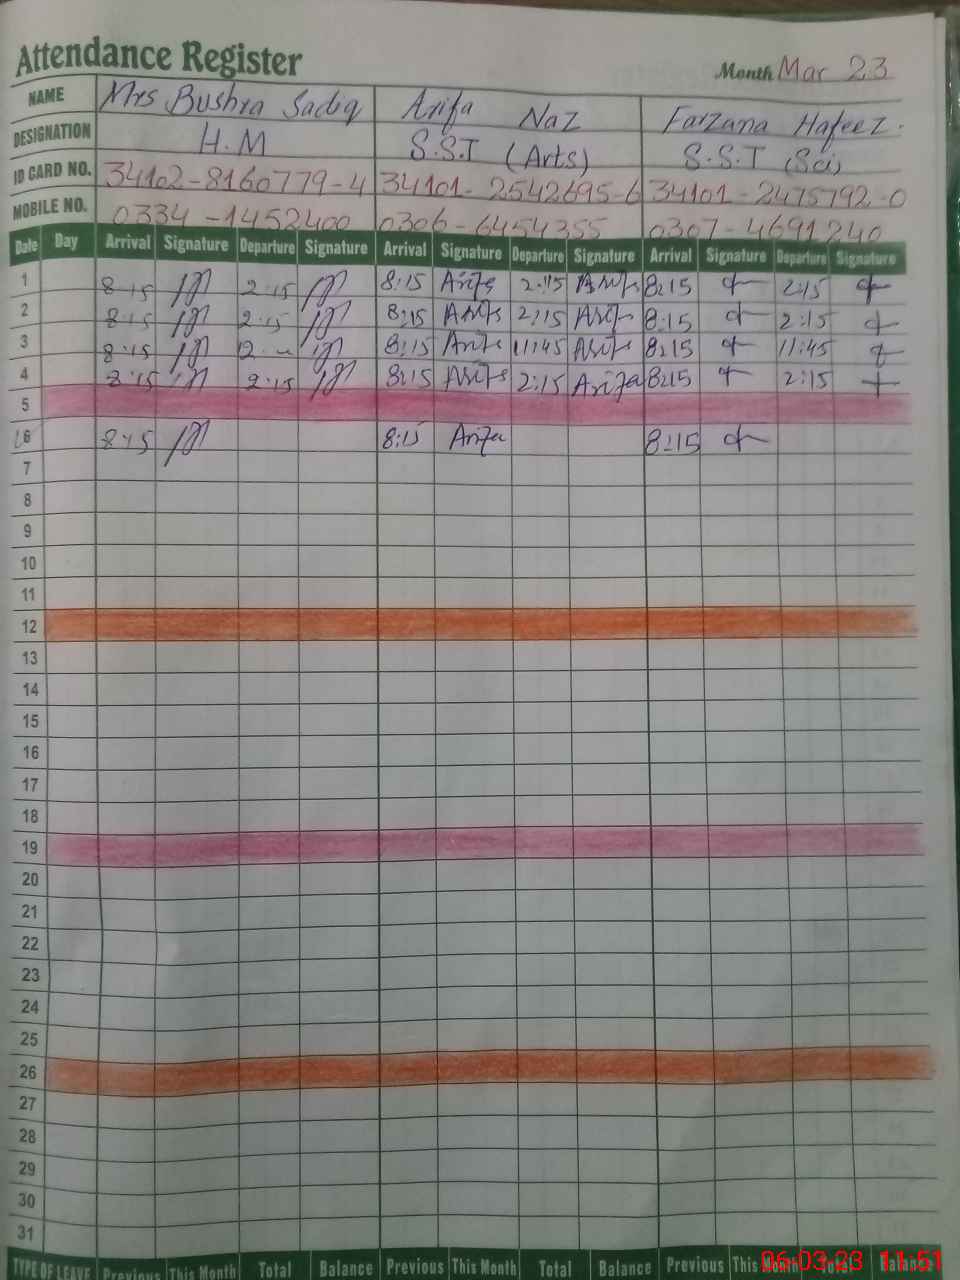 Attendance Register
Month Mar 23
NAME Mrs Bushra Sadiq Arifa Naz Farzana Hafeez.
DESIGNATION H.M S.S.T (Arts) S.S.T (Sci)
ID CARD NO. 34102-8160779-4 34101-2542695-6 34101-2475792-0
MOBILE NO. 0334-1452400 0306-6454355 0307-4691240
Date Day Arrival Signature Departure Signature Arrival Signature Departure Signature Arrival Signature Departure Signature
1 8:15 2:15 8:15 Arifa 2:15 Arifa 8:15 2:15
2 8:15 2:15 8:15 Arifa 2:15 Arifa 8:15 2:15
3 8:15 8:15 Arifa 11:45 Arifa 8:15 11:45
4 8:15 2:15 8:15 Arifa 2:15 Arifa 8:15 2:15
5
6 8:15 8:15 Arifa 8:15
7
8
9
10
11
12
13
14
15
16
17
18
19
20
21
22
23
24
25
26
27
28
29
30
31
TYPE OF LEAVE Previous This Month Total Balance Previous This Month Total Balance Previous This Month Total Balance
06-03-23 11:51